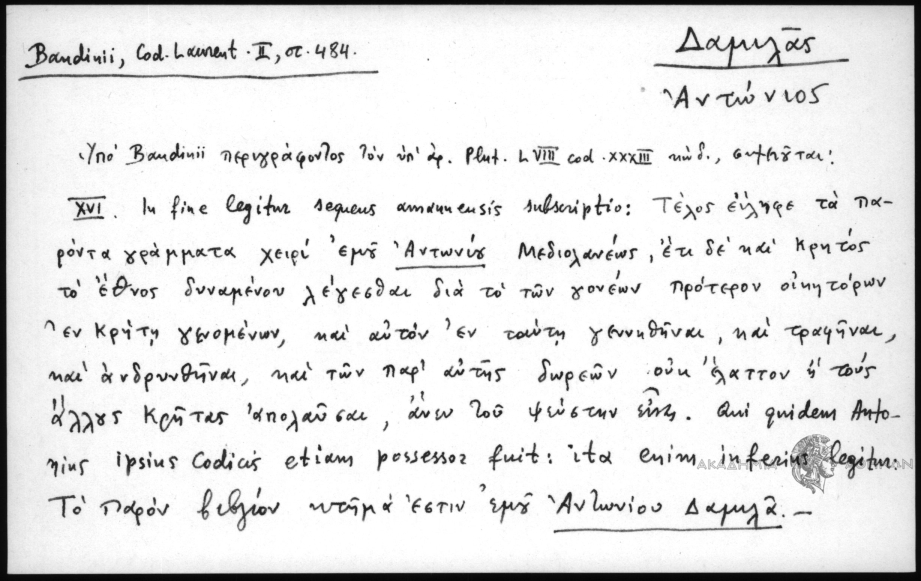 Bandinii, Cod. Laurent. II, σ. 484.
Δαμιλᾶς
Ἀντώνιος
Ὑπό Bandinii περιγράφοντος τὸν ὑπ' ἀρ. Plut. LVIII cod. XXXIII κώδ., σημειοῦται:
XVI. In fine legitur sequens amanuensis subscriptio: Τέλος εἴληφε τὰ πα-
ρόντα γράμματα χειρί ἐμοῦ Ἀντωνίου Μεδιολανέως, ἔτι δέ καί Κρητός
τό ἔθνος δυναμένου λέγεσθαι διά τό τῶν γονέων πρότερον οἰκητόρων
ἐν Κρήτῃ γενομένων, καί αὐτόν ἐν ταύτῃ γεννηθῆναι, καί τραφῆναι,
καί ἀνδρυνθῆναι, καί τῶν παρ' αὐτῆς δωρεῶν οὐκ ἔλαττον ἤ τούς
ἄλλους Κρῆτας ἀπολαῦσαι, ἄνευ τοῦ ψεύστην εἶναι. Qui quidem Anto-
nius ipsius Codicis etiam possessor fuit: ita enim inferius legitur:
Τό παρόν βιβλίον κτῆμά ἐστιν ἐμοῦ Ἀντωνίου Δαμιλᾶ. —
ΑΚΑΔΗΜΙΑ